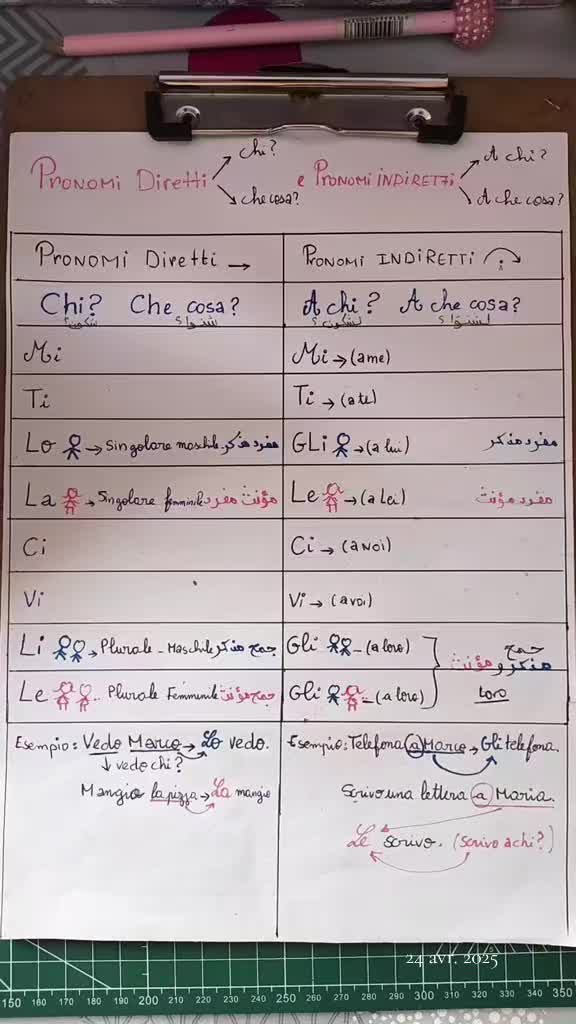 Pronomi Diretti chi? e Pronomi INDIRETTI A chi?
che cosa? A che cosa?
Pronomi Diretti → Pronomi INDIRETTI
Chi? Che cosa? A chi? A che cosa?
شكون؟ شنوا؟ لشكون؟ لشنوا؟
Mi Mi → (a me)
Ti Ti → (a te)
Lo → Singolare maschile مفرد مذكر GLi → (a lui) مفرد مذكر
La → Singolare femminile مؤنث مفرد Le → (a Lei) مفرد مؤنث
Ci Ci → (a NOI)
Vi Vi → (a voi)
Li → Plurale - Maschile جمع مذكر Gli - (a loro) جمع
مذكر و مؤنث
Le .. Plurale Femminile جمع مؤنث Gli .. (a loro) Loro
Esempio: Vedo Marco → Lo vedo. Esempio: Telefona a Marco → Gli telefona.
↓ vedo chi?
Mangio la pizza → La mangio Scrivo una lettera a Maria.
Le scrivo. (scrivo a chi?)
24 avr. 2025
150 160 170 180 190 200 210 220 230 240 250 260 270 280 290 300 310 320 330 340 350